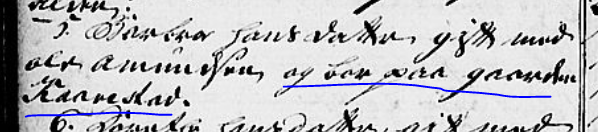 5. Borber Hans datter, gift med
ole Amundsen, og boer paa gaarden
Kaarestad.
6. hansdatter, gift med